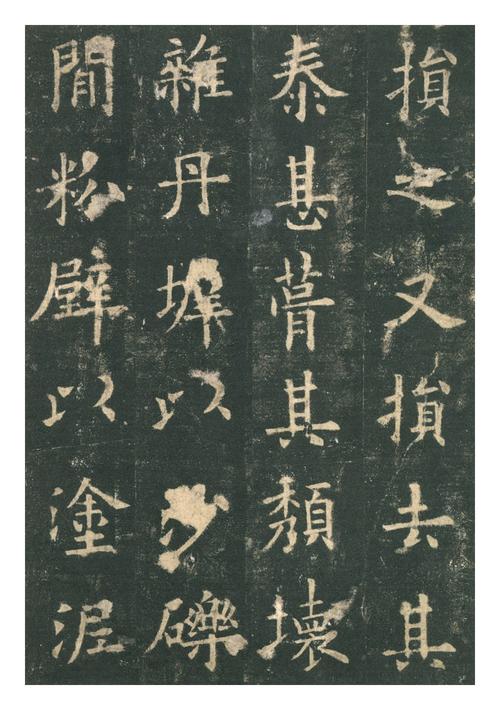 損之又損去其
泰甚葺其頽壞
雜丹墀以沙礫
閒粉壁以塗泥